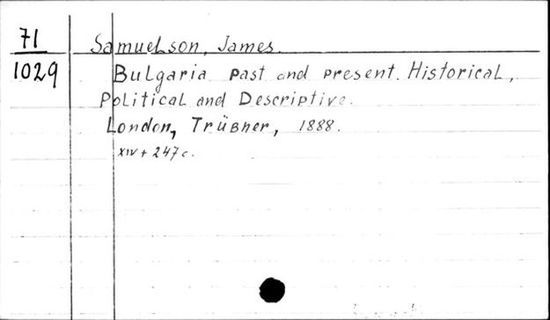 71
1029
Samuelson, James.
Bulgaria past and present. Historical,
Political and Descriptive.
London, Trübner, 1888.
XIV + 247 c.